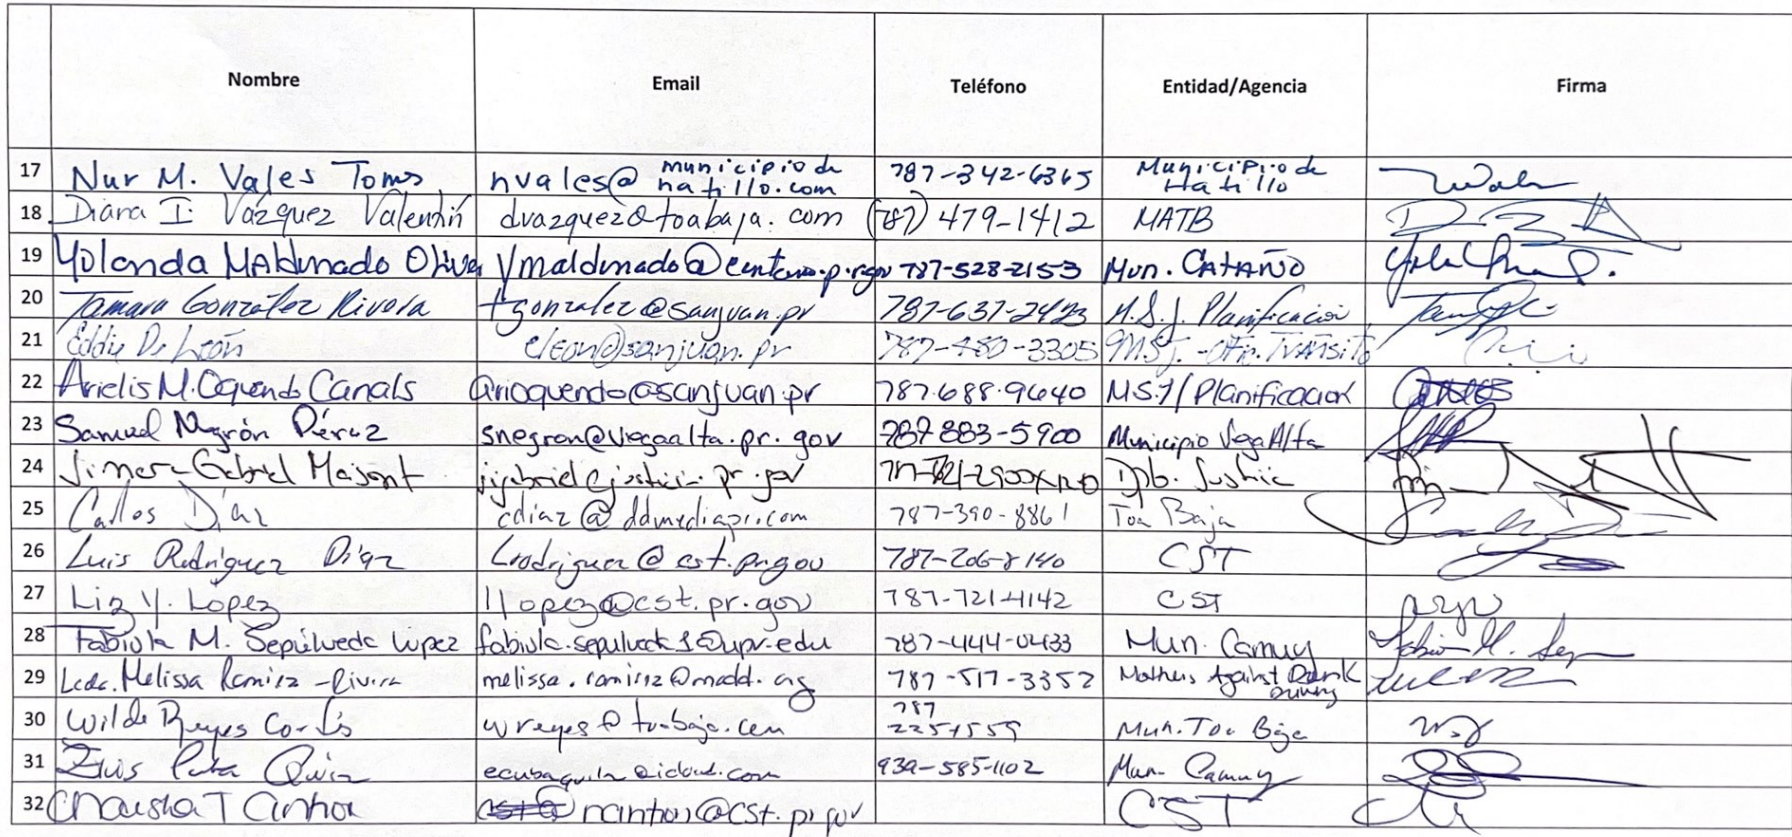 Nombre Email Teléfono Entidad/Agencia Firma
17 Nur M. Vales Toms nvales@municipiodehatillo.com 787-342-6365 Municipio de Hatillo
18 Diana I. Vázquez Valentín dvazquez@toabaja.com (787) 479-1412 MATB
19 Yolanda Maldonado Oliver 787-528-2153 Mun. CATAÑO
20 Tamara González Rivera tgonzalez@sanjuan.pr 787-637-2423 M.S.J. Planificación
21 Eddie De León eleon@sanjuan.pr 787-480-3305 M.S.J. - Ofic. Tránsito
22 Arielis M. Oquendo Canals arioquendo@sanjuan.pr 787.688.9640 M.SJ/Planificacion
23 Samuel Negrón Pérez snegron@vegaalta.pr.gov 787 883-5900 Municipio Vega Alta
24 Gabriel jgabriel@justicia.pr.gov Dpto. Justicia
25 Carlos Díaz cdiaz@ddmediapr.com 787-390-8861 Toa Baja
26 Luis Rodríguez Díaz Lrodriguez@cst.pr.gov 787-206-8140 CST
27 Liz Y. Lopez llopez@cst.pr.gov 787-721-4142 CST
28 Fabiola M. Sepúlveda Lopez fabiola.sepulveda1@upr.edu 787-444-0433 Mun. Camuy
29 Lcda. Melissa Ramirez-Rivera melissa.ramirez@madd.org 787-517-3352 Mothers Against Drunk Driving
30 Reyes wreyes@toabaja.com 787 Mun. Toa Baja
31 939-585-1102 Mun. Camuy
32 CST